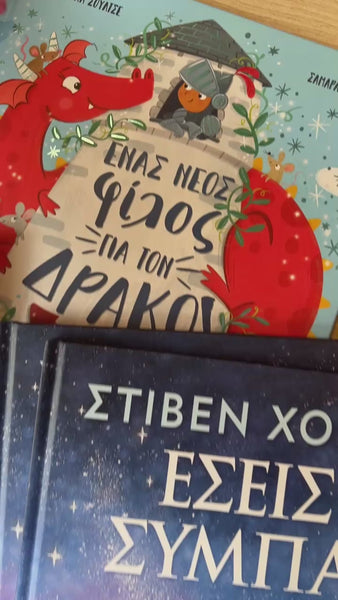 ΖΟΥΛΙΣΕ
ΣΑΜΑΡΑ
ΕΝΑΣ ΝΕΟΣ
φίλος
ΓΙΑ ΤΟΝ
ΔΡΑΚΟ
ΣΤΙΒΕΝ ΧΟ
ΕΣΕΙΣ
ΣΥΜΠΑ